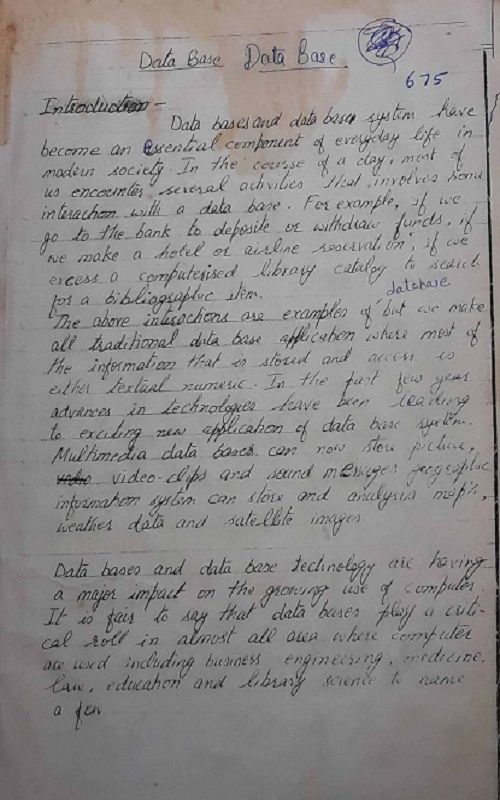 Data Base Data Base
675
Introduction -
Data bases and data bases system have
become an Essential component of everyday life in
modern society. In the course of a day, most of
us encounter several activities that involves some
interaction with a data base. For example, if we
go to the bank to deposite or withdraw funds, if
we make a hotel or airline reservation, if we
excess a computerised library catalog to search
for a bibliographic item.
database
The above interactions are examples of but we make
all traditional data base application where most of
the information that is stored and access is
either textual numeric. In the past few years
advances in technologies have been leading
to exciting new application of data base system.
Multimedia data bases can now store picture,
video-clips and sound messages geographic
information system can store and analysis map's,
weather data and satellite images

Data bases and data base technology are having
a major impact on the growing use of computer.
It is fair to say that data bases play a criti-
cal roll in almost all area where computer
are used including business engineering, medicine,
law, education and library science to name
a few